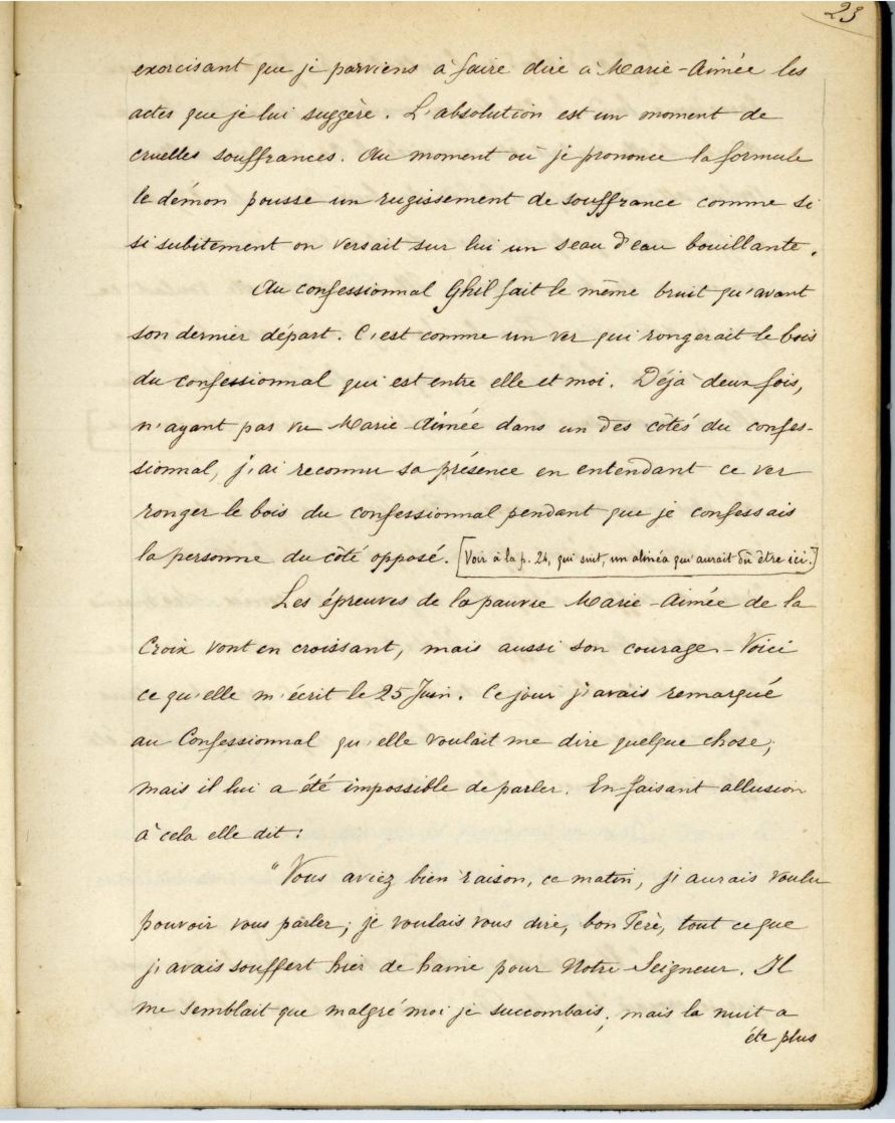 23
exorcisant que je parviens à faire dire à Marie-Aimée les
actes que je lui suggère. L'absolution est un moment de
cruelles souffrances. Au moment où je prononce la formule
le démon pousse un rugissement de souffrance comme si
si subitement on versait sur lui un seau d'eau bouillante.
Au confessionnal Ghil fait le même bruit qu'avant
son dernier départ. C'est comme un ver qui rongerait le bois
du confessionnal qui est entre elle et moi. Déjà deux fois,
n'ayant pas vu Marie-Aimée dans un des côtés du confes-
sionnal, j'ai reconnu sa présence en entendant ce ver
ronger le bois du confessionnal pendant que je confessais
la personne du côté opposé. [Voir à la p. 24, qui suit, un alinéa qui aurait dû être ici.]
Les épreuves de la pauvre Marie-Aimée de la
Croix vont en croissant, mais aussi son courage - Voici
ce qu'elle m'écrit le 25 Juin. Ce jour j'avais remarqué
au Confessionnal qu'elle voulait me dire quelque chose;
mais il lui a été impossible de parler. En faisant allusion
à cela elle dit:
"Vous aviez bien raison, ce matin, j'aurais voulu
pouvoir vous parler; je voulais vous dire, bon Père, tout ce que
j'avais souffert hier de haine pour Notre-Seigneur. Il
me semblait que malgré moi je succombais; mais la nuit a
été plus